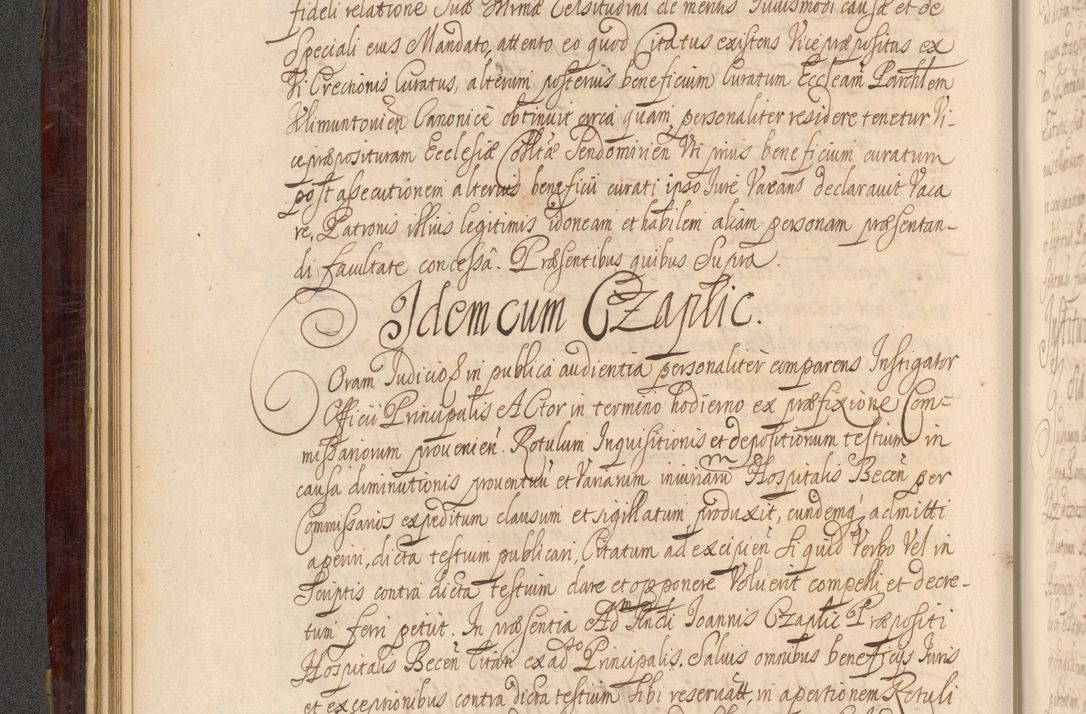 fideli relatione Suæ Illrmæ Celsitudini de meritis huiusmodi causæ et de
speciali eius Mandato, attento eo quod Citatus existens Vicepræpositus ex
Vi Erectionis Curatus, alterum posterius beneficium Curatum Eccleam Parchlem
Klimuntovien Canonice obtinuit circa quam personaliter residere tenetur Vi-
cepræposituram Ecclesiæ Colltæ Sendomirien Vti prius beneficium curatum
post assecutionem alterius beneficii curati ipso Iure Vacans declaravit Vaca
re, Patronis illius legitimis idoneam et habilem aliam personam præsentan-
di facultate concessâ. Præsentibus quibus supra
Idem cum Czaplic.
Coram Iudicio & in publica audientia personaliter comparens Instigator
Officii Principalis Actor in termino hodierno ex præfixione Com-
missariorum provenien. Rotulum Inquisitionis et depositionum testium in
causa diminutionis proventuu et Variarum iniuriaru Hospitalis Becen per
Commissarios expeditum clausum et sigillatum produxit, eundemq admitti
aperiri, dicta testium publicari, Citatum ad excipien si quid Verbo Vel in
Scriptis contra dicta testium dare et opponere Voluerit compelli et decre-
tum ferri petiit. In præsentia Ad Rndi Ioannis Czaplic Præpositi
Hospitalis Becen Citati ex adto Principalis. Salvis omnibus beneficijs Iuris
et exceptionibus contra dicta testium sibi reservatt, in apertionem Rotuli